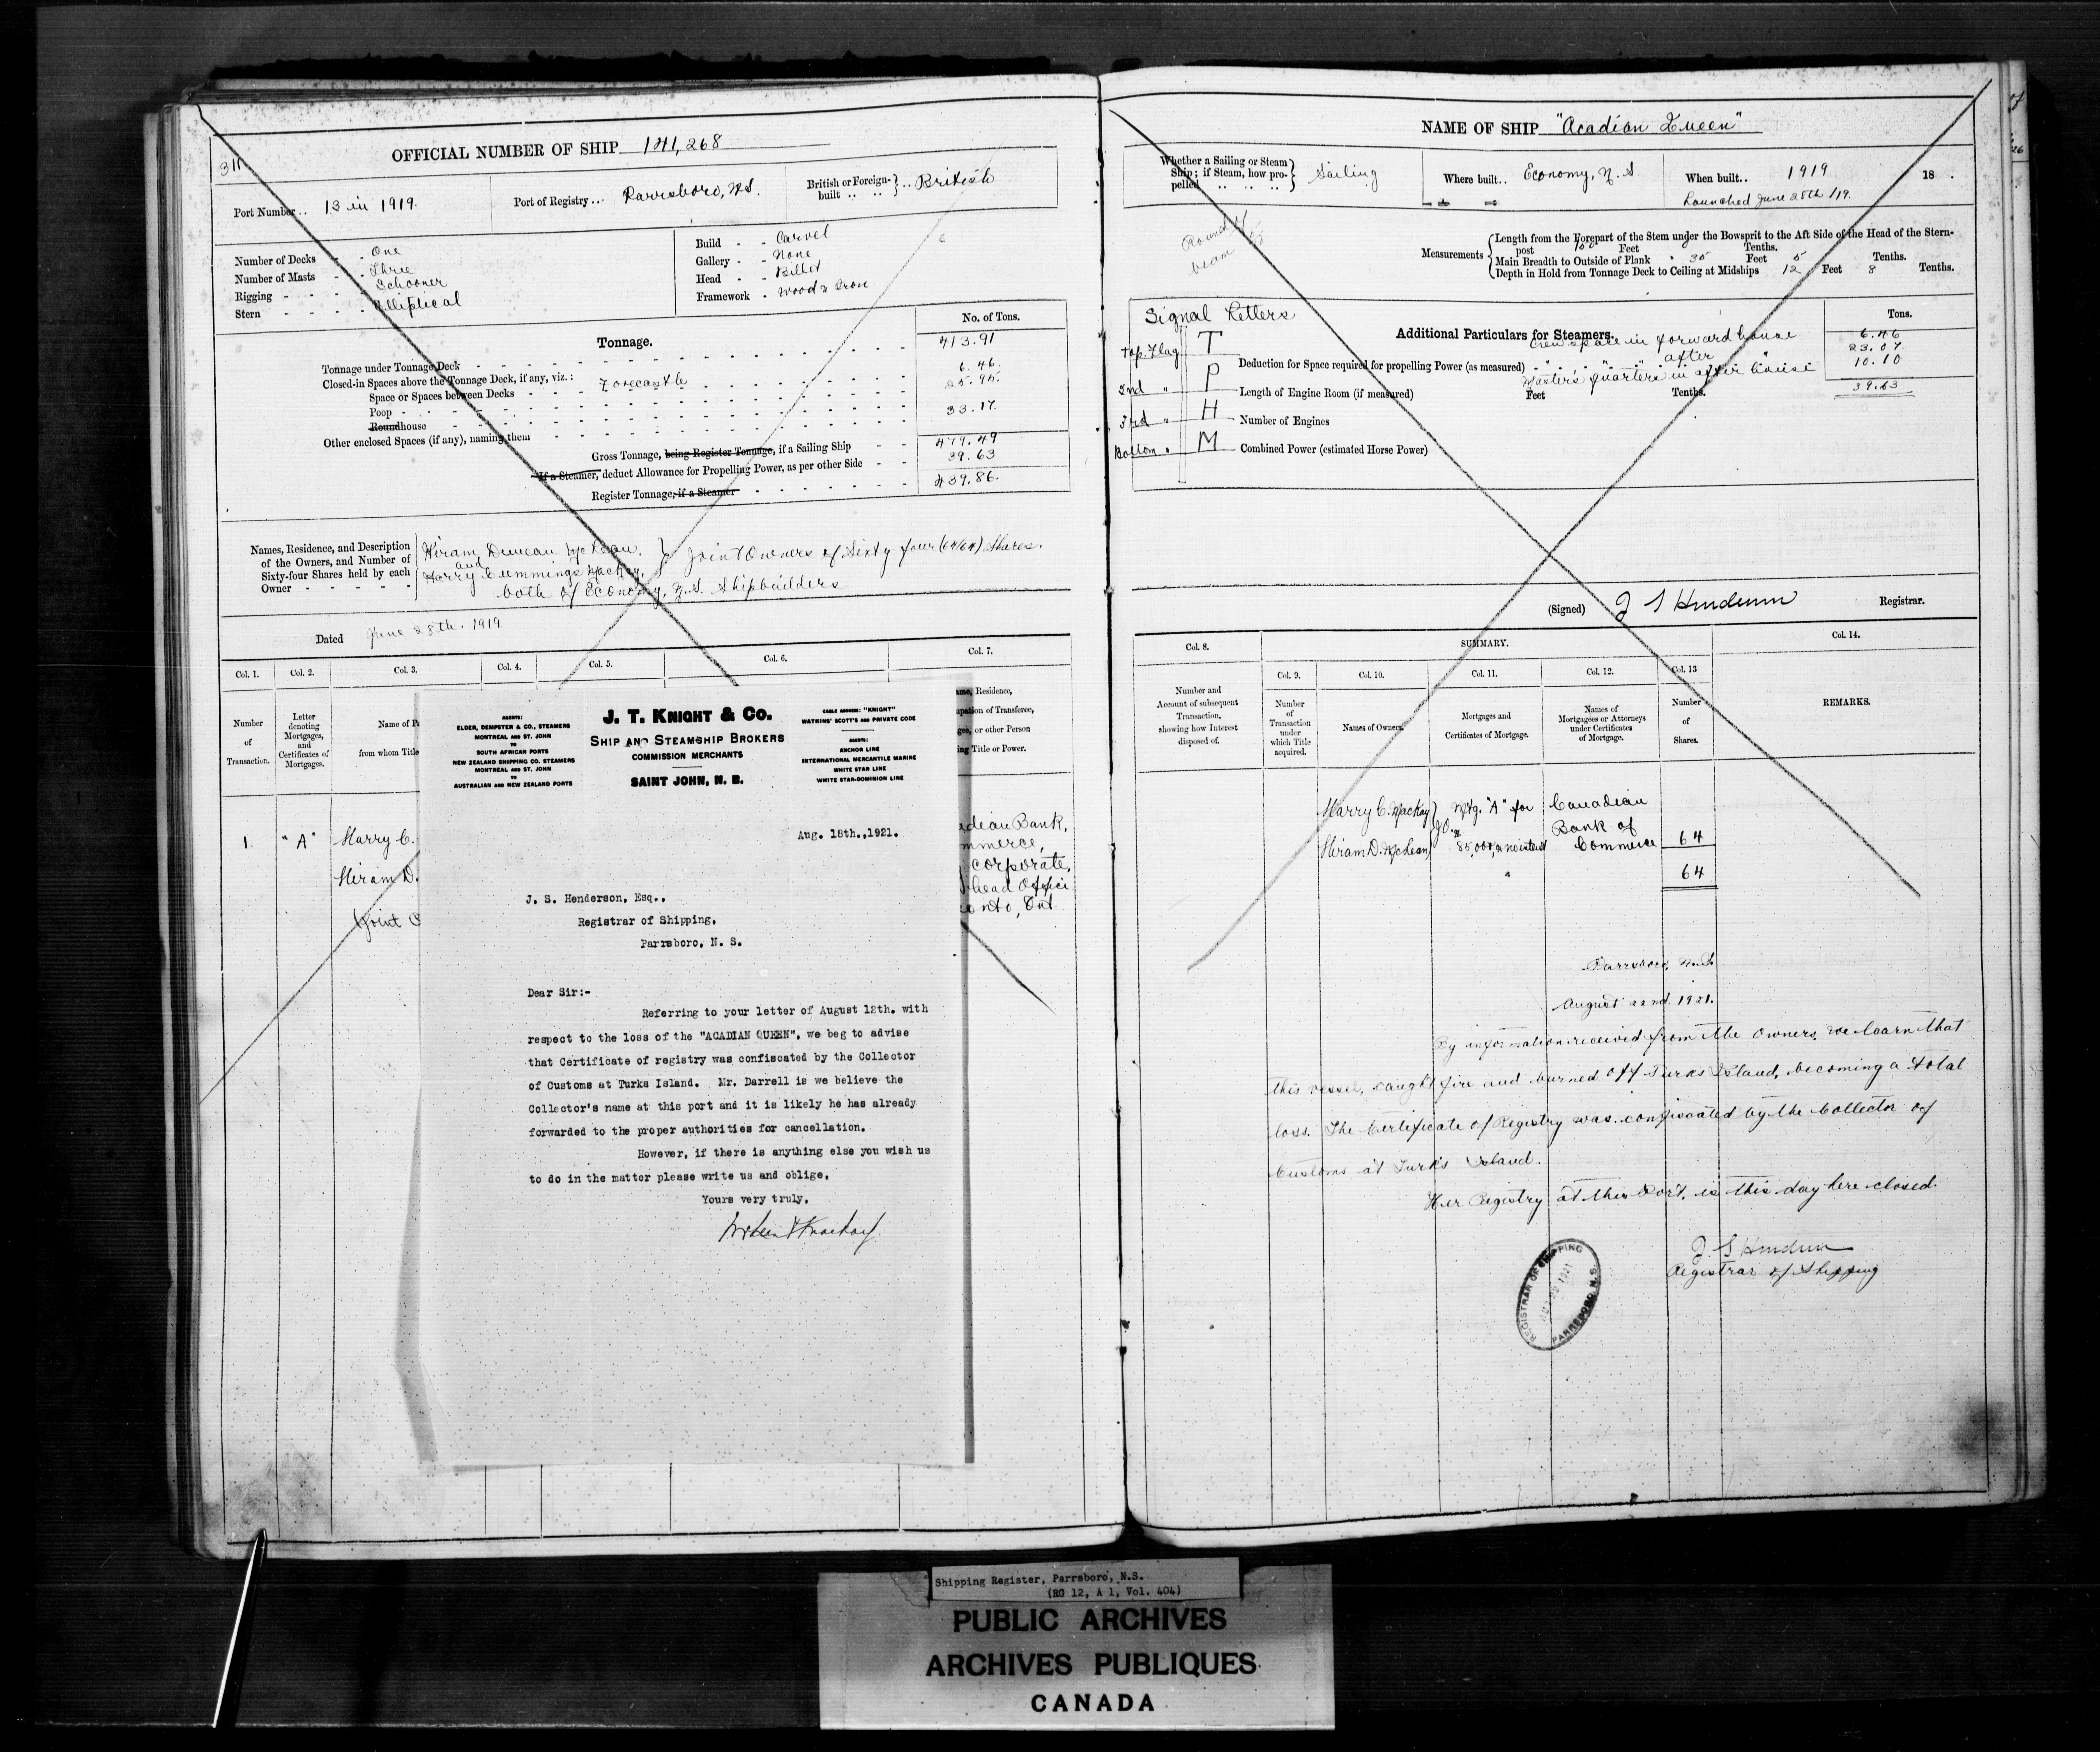 311
OFFICIAL NUMBER OF SHIP 141,268
Port Number.. 13 in 1919.
Port of Registry.. Parrsboro, N.S.
British or Foreign-built .. British
Number of Decks - - One
Number of Masts - - Three
Rigging - - - - Schooner
Stern - - - - Elliptical
Build - - Carvel
Gallery - - None
Head - - Billet
Framework - Wood & Iron
Tonnage.
No. of Tons.
Tonnage under Tonnage Deck 413.91
Closed-in Spaces above the Tonnage Deck, if any, viz.: Forecastle 6.46
Space or Spaces between Decks 25.95
Poop
Roundhouse 33.17.
Other enclosed Spaces (if any), naming them
Gross Tonnage, being Register Tonnage, if a Sailing Ship 479.49
If a Steamer, deduct Allowance for Propelling Power, as per other Side 39.63
Register Tonnage, if a Steamer 439.86.
Names, Residence, and Description of the Owners, and Number of Sixty-four Shares held by each Owner
Hiram Duncan McLean,
and
Harry Cummings MacKay,
Joint Owners of Sixty four (64/64) Shares.
both of Economy, N.S. Shipbuilders
Dated June 28th. 1919
Col. 1. Col. 2. Col. 3. Col. 4. Col. 5. Col. 6. Col. 7.
Number of Transaction.
Letter denoting Mortgages, and Certificates of Mortgages.
Name of P
from whom Title
ame, Residence,
upation of Transferee,
gee, or other Person
ing Title or Power.
1. "A" Harry C.
Hiram D.
Joint O
adian Bank,
mmerce,
corporate,
head Offici
onto, Ont
AGENTS:
ELDER, DEMPSTER & CO., STEAMERS
MONTREAL AND ST. JOHN
TO
SOUTH AFRICAN PORTS
NEW ZEALAND SHIPPING CO. STEAMERS
MONTREAL AND ST. JOHN
TO
AUSTRALIAN AND NEW ZEALAND PORTS
J. T. KNIGHT & CO.
SHIP AND STEAMSHIP BROKERS
COMMISSION MERCHANTS
SAINT JOHN, N. B.
CABLE ADDRESS: "KNIGHT"
WATKINS' SCOTT'S AND PRIVATE CODE
AGENTS:
ANCHOR LINE
INTERNATIONAL MERCANTILE MARINE
WHITE STAR LINE
WHITE STAR-DOMINION LINE
Aug. 18th.,1921.
J. S. Henderson, Esq.,
Registrar of Shipping,
Parrsboro, N. S.
Dear Sir:-
Referring to your letter of August 12th. with
respect to the loss of the "ACADIAN QUEEN", we beg to advise
that Certificate of registry was confiscated by the Collector
of Customs at Turks Island. Mr. Darrell is we believe the
Collector's name at this port and it is likely he has already
forwarded to the proper authorities for cancellation.
However, if there is anything else you wish us
to do in the matter please write us and oblige,
Yours very truly,
NAME OF SHIP "Acadian Queen"
Whether a Sailing or Steam Ship; if Steam, how propelled .. Sailing
Where built.. Economy, N.S
When built.. 1919 18 .
Launched June 28th /19.
Round of
beam
Measurements
Length from the Forepart of the Stem under the Bowsprit to the Aft Side of the Head of the Stern-
post Feet Tenths.
Main Breadth to Outside of Plank 35 Feet 5 Tenths.
Depth in Hold from Tonnage Deck to Ceiling at Midships 12 Feet 8 Tenths.
Signal Letters
Top Flag T
2nd " P
3rd " H
Bottom " M
Additional Particulars for Steamers.
Tons.
Crew space in forward house 6.46
" " " after " 23.07.
Master's quarters in after house 10.10
39.63
Deduction for Space required for propelling Power (as measured)
Length of Engine Room (if measured) Feet Tenths.
Number of Engines
Combined Power (estimated Horse Power)
(Signed) J S Henderson Registrar.
Col. 8.
SUMMARY.
Col. 14.
Col. 9. Col. 10. Col. 11. Col. 12. Col. 13
Number and Account of subsequent Transaction, showing how Interest disposed of.
Number of Transaction under which Title acquired.
Names of Owners.
Mortgages and Certificates of Mortgage.
Names of Mortgagees or Attorneys under Certificates of Mortgage.
Number of Shares.
REMARKS.
Harry C. MacKay Mtg. "A" for Canadian
J.O. Bank of
Hiram D. McLean Commerce 64
64
Parrsboro, N.S.
August 22nd. 1921.
By information received from the Owners, we learn that
this vessel, caught fire and burned off Turks Island, becoming a total
loss. The Certificate of Registry was confiscated by the Collector of
Customs at Turks Island.
Her Registry at this Port, is this day here closed.
J. S Henderson
Registrar of Shipping
REGISTRAR OF SHIPPING
PARRSBORO, N.S.
Shipping Register, Parrsboro, N.S.
(RG 12, A 1, Vol. 404)
PUBLIC ARCHIVES
ARCHIVES PUBLIQUES
CANADA